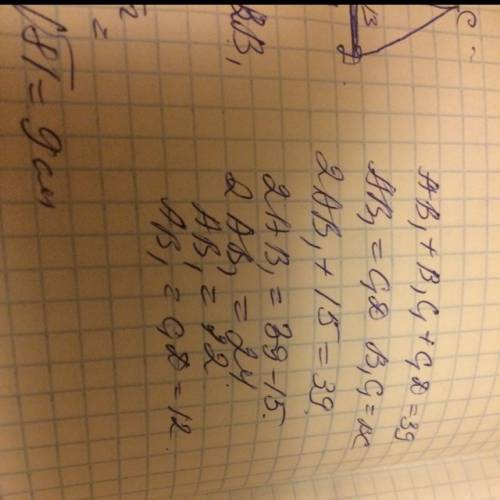 C
B
D
BB₁
√81 = 9 см
AB₁ + B₁C₁ + C₁D = 39
AB₁ = C₁D B₁C₁ = BC
2AB₁ + 15 = 39
2AB₁ = 39 - 15
2AB₁ = 24
AB₁ = 12
AB₁ = C₁D = 12